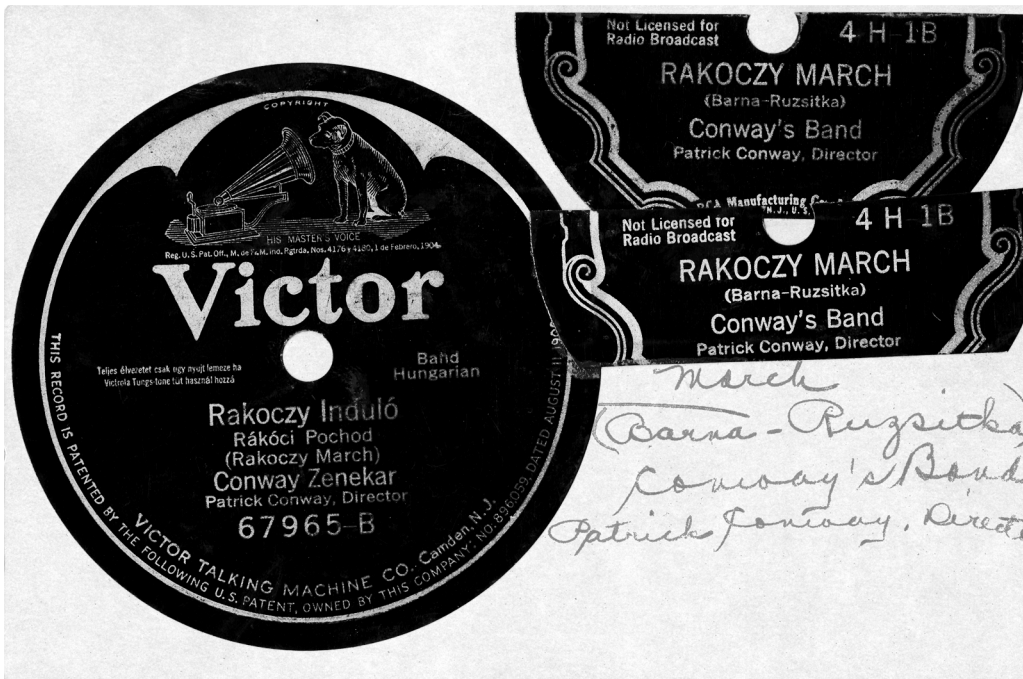 COPYRIGHT
HIS MASTER'S VOICE
Reg. U. S. Pat. Off., M. de F. & M. Ind. Rgtrda. Nos. 4176 y 4180, 1 de Febrero, 1904
Victor
Teljes élvezetet csak ugy nyujt lemeze ha
Victrola Tungs-tone tüt használ hozzá
Band
Hungarian
Rakoczy Induló
Rákóci Pochod
(Rakoczy March)
Conway Zenekar
Patrick Conway, Director
67965-B
VICTOR TALKING MACHINE CO. Camden, N. J.
THIS RECORD IS PATENTED BY THE FOLLOWING U. S. PATENT, OWNED BY THIS COMPANY: NO. 896059, DATED AUGUST 11
Not Licensed for
Radio Broadcast
4 H-1B
RAKOCZY MARCH
(Barna-Ruzsitka)
Conway's Band
Patrick Conway, Director
RCA Manufacturing
N. J., U. S.
Not Licensed for
Radio Broadcast
4 H 1B
RAKOCZY MARCH
(Barna-Ruzsitka)
Conway's Band
Patrick Conway, Director
March
(Barna - Ruzsitka)
Conway's Band
Patrick Conway, Direct